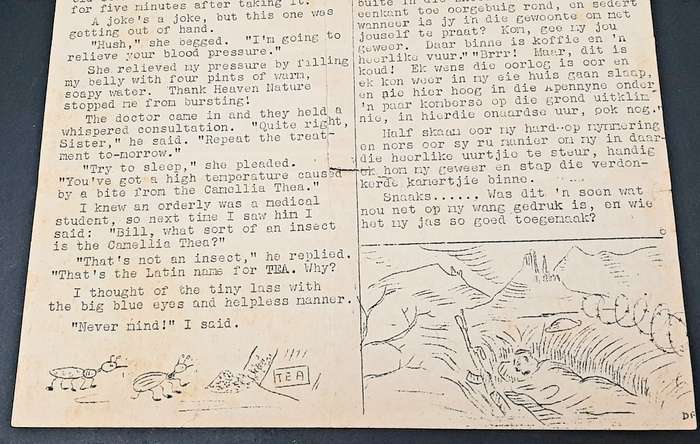 for five minutes after taking it.
A joke's a joke, but this one was
getting out of hand.
"Hush," she begged. "I'm going to
relieve your blood pressure."
She relieved my pressure by filling
my belly with four pints of warm,
soapy water. Thank Heaven Nature
stopped me from bursting!
The doctor came in and they held a
whispered consultation. "Quite right,
Sister," he said. "Repeat the treat-
ment to-morrow."
"Try to sleep," she pleaded.
"You've got a high temperature caused
by a bite from the Camellia Thea."
I knew an orderly was a medical
student, so next time I saw him I
said: "Bill, what sort of an insect
is the Camellia Thea?"
"That's not an insect," he replied.
"That's the Latin name for TEA. Why?
I thought of the tiny lass with
the big blue eyes and helpless manner.
"Never mind!" I said.
TEA
eenkant toe oorgebuig rond, en sedert
wanneer is jy in die gewoonte om met
jouself te praat? Kom, gee my jou
geweer. Daar binne is koffie en 'n
heerlike vuur." "Brrr! Maar, dit is
koud! Ek wens die oorlog is oor en
ek kon weer in my eie huis gaan slaap,
en nie hier hoog in die Apennyne onder
'n paar komberse op die grond uitklim
nie, in hierdie onaardse uur, pok nog."
Half skaam oor my hard-op mymmering
en nors oor sy ru manier om my in daar-
die heerlike uurtjie te steur, handig
ek hom my geweer en stap die verdon-
kerde kamertjie binne.
Snaaks...... Was dit 'n soen wat
nou net op my wang gedruk is, en wie
het my jas so goed toegemaak?